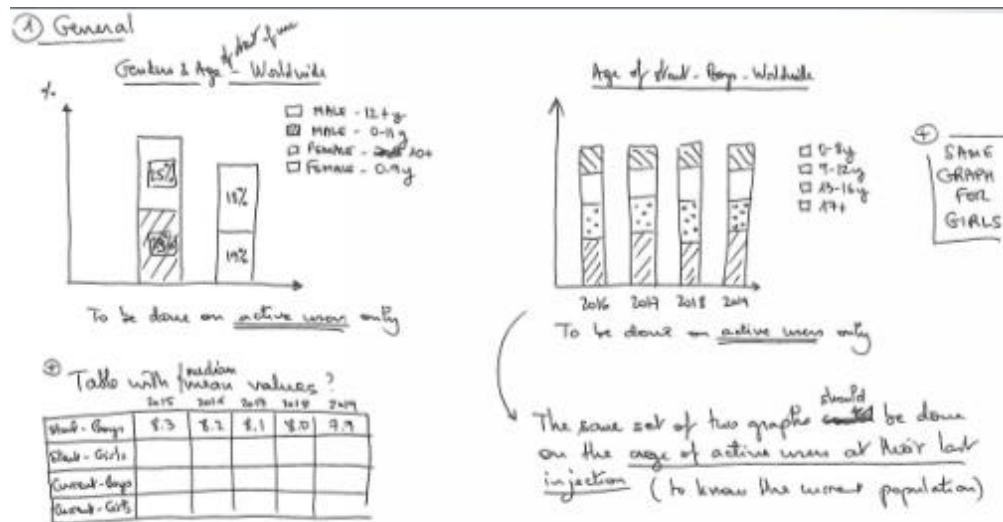 ① General
Genders & Age of start of use - Worldwide
%
MALE - 12+ y
MALE - 0-11 y
FEMALE - 10+
FEMALE - 0-9 y
25%
18%
19%
To be done on active users only
⊕ Table with median / mean values?
2015 2016 2017 2018 2019
Start-Boys 8.3 8.2 8.1 8.0 7.9
Start-Girls
Current-Boys
Current-Girls
Age of start - Boys - Worldwide
0-8y
9-12y
13-16y
17+
2016 2017 2018 2019
To be done on active users only
⊕
SAME
GRAPH
FOR
GIRLS
The same set of two graphs should be done
on the age of active users at their last
injection (to know the current population)